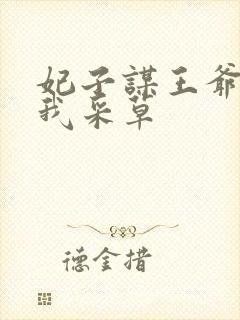 妃子謀王爺
我采草
德金措